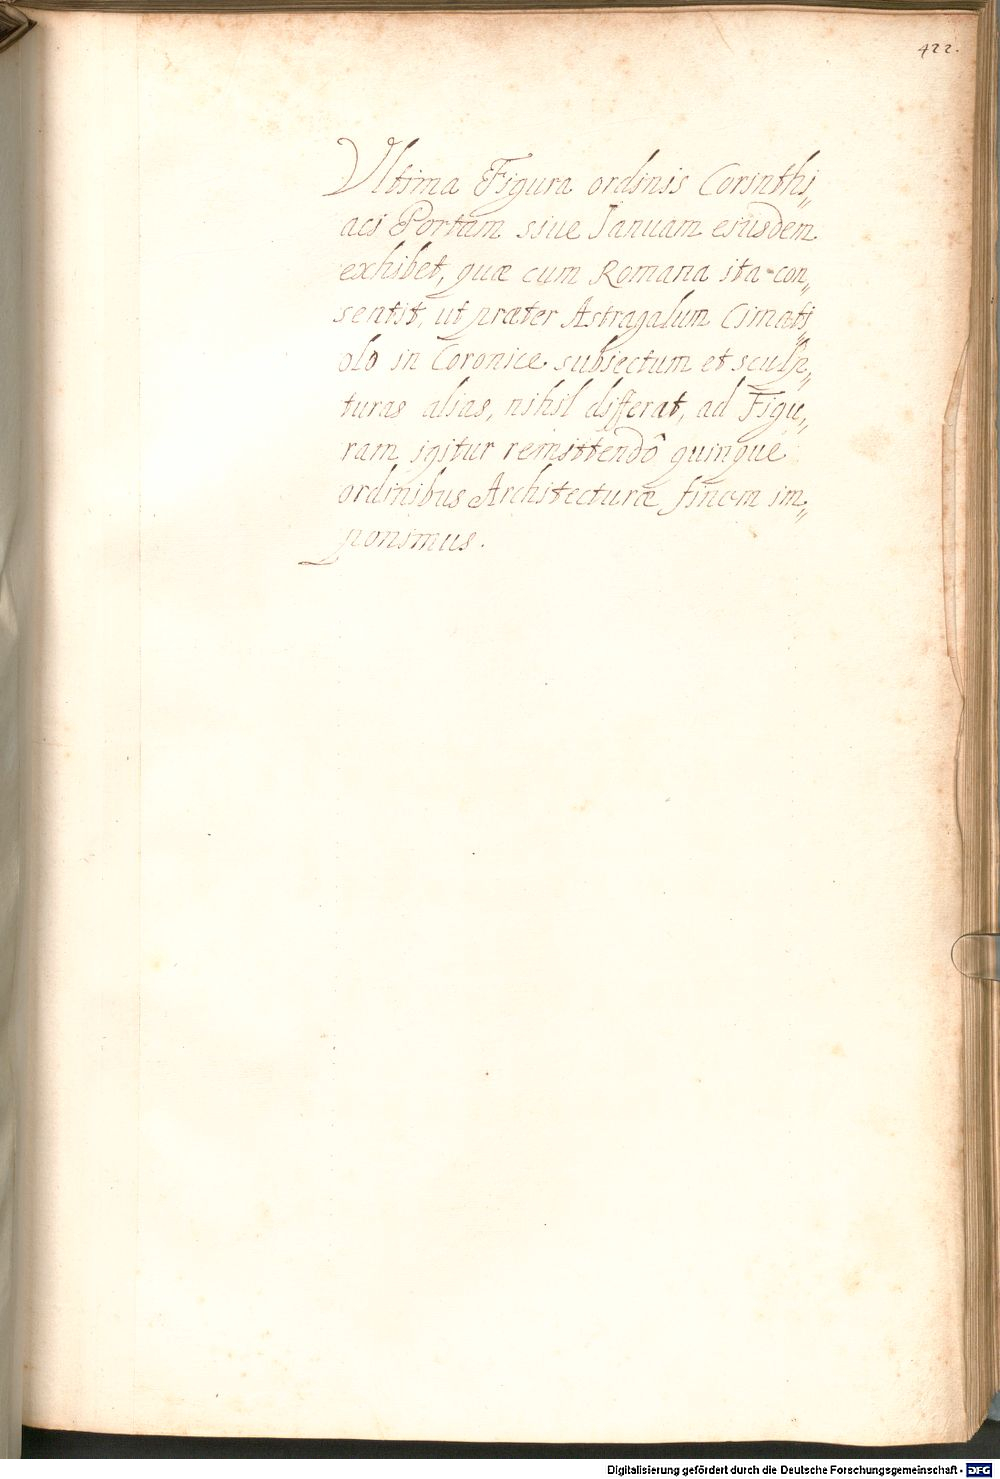 422.
Vltima Figura ordinis Corinthi„
aci Portam siue Ianuam ejusdem
exhibet, quæ cum Romana ita con„
sentit, ut præter Astragalum Cimati„
olo in Coronice subiectum et sculp„
turas alias, nihil differat, ad Figu„
ram igitur remittendô quinque
ordinibus Architecturæ finem im„
ponimus.
Digitalisierung gefördert durch die Deutsche Forschungsgemeinschaft - DFG